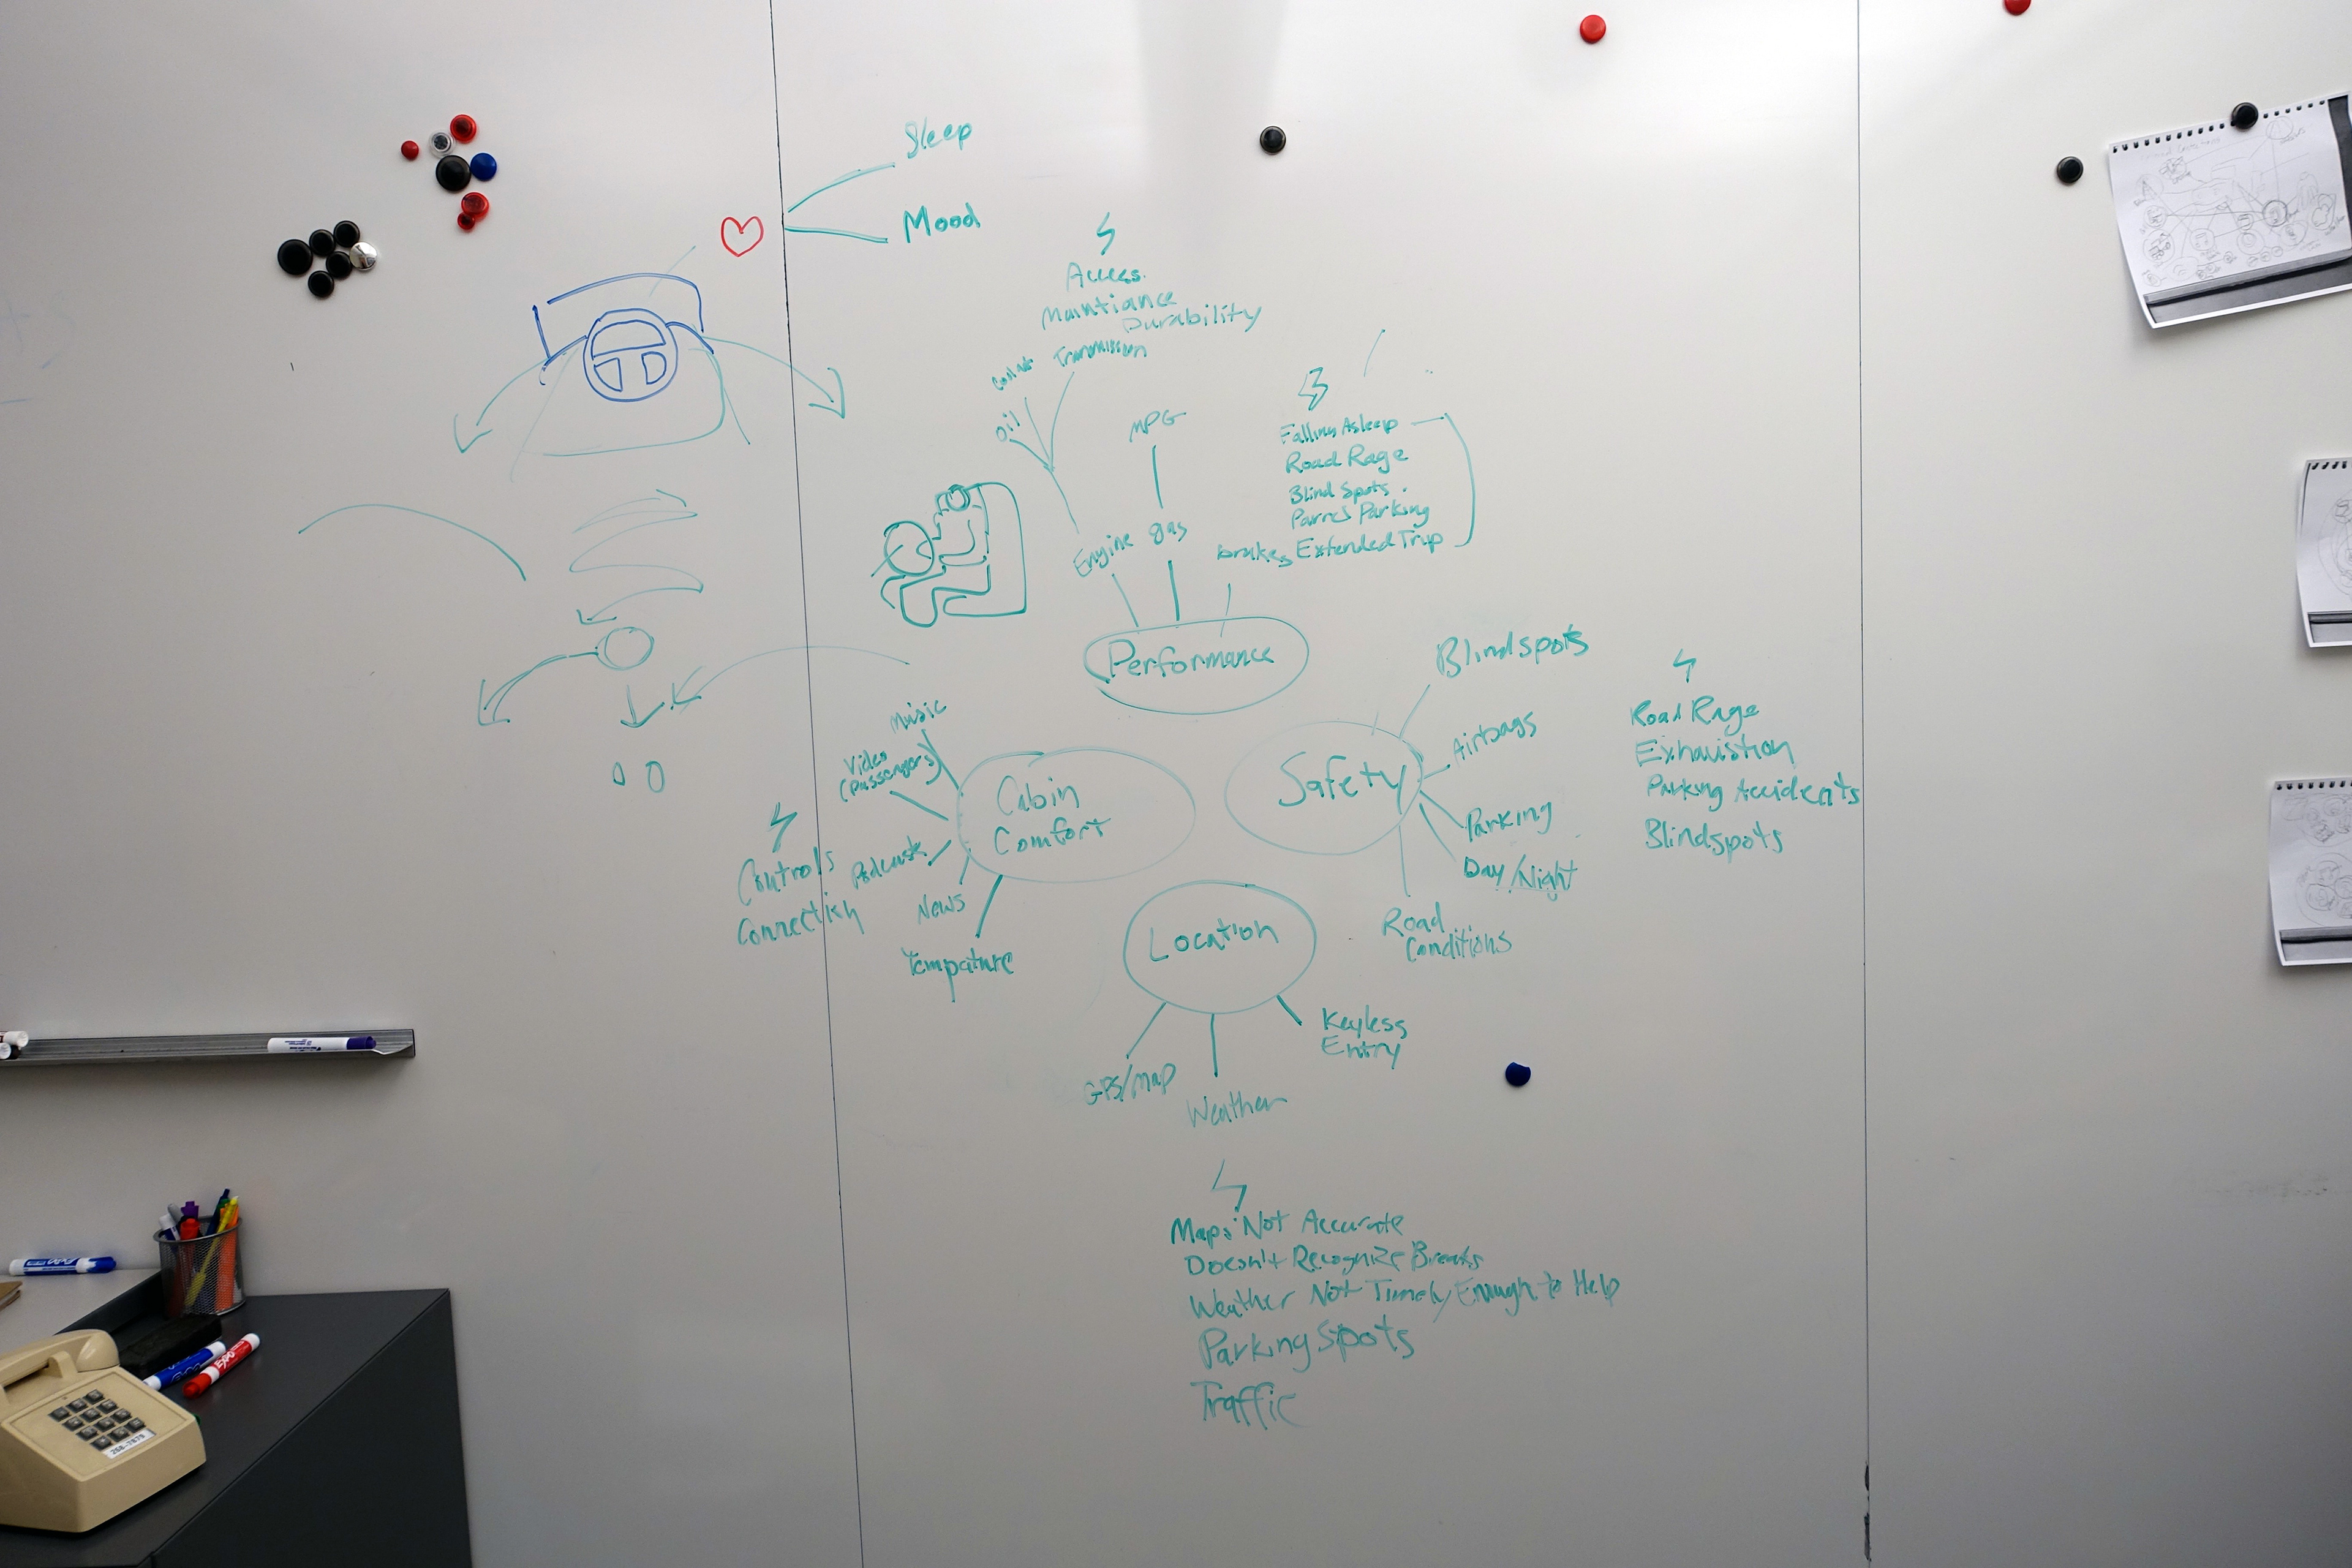 Sleep
Mood
Access.
Maintiance
Durability
Transmission
Oil
MPG
Engine
gas
brakes
Falling Asleep
Road Rage
Blind Spots.
Parking
Extended Trip
Performance
Blindspots
Airbags
Parking
Day/Night
Road
Conditions
Safety
Road Rage
Exhaustion
Parking Accidents
Blindspots
Music
Video
(passengers)
Podcasts
News
Tempature
Cabin
Comfort
Controls
Connection
Location
GPS/Map
Weather
Keyless
Entry
Maps Not Accurate
Doesn't Recognize Breaks
Weather Not Timely Enough to Help
Parking Spots
Traffic
EXPO
268-7879